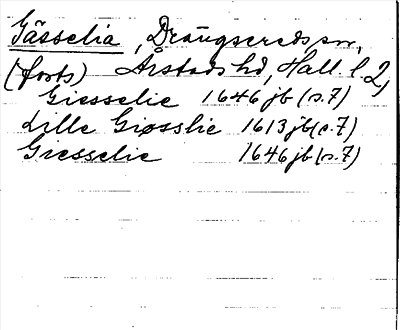 Gässelia, Drängseredssn,
(forts) Årstads hd, Hall. l. 2,
Giesselie 1646 jb (s. 7)
Lille Giøsslie 1613 jb (s. 7)
Giesselie 1646 jb (s. 7)